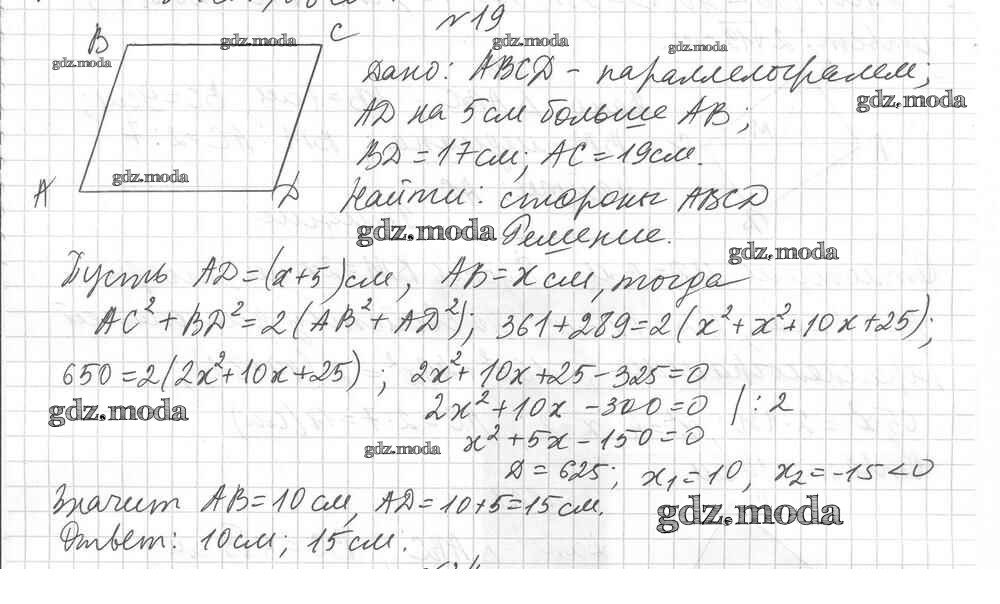 №19
B C
Дано: ABCD - параллелограмм;
AD на 5 см больше AB;
BD = 17 см; AC = 19 см.
A D
Найти: стороны ABCD
Решение.
Пусть AD = (x+5) см, AB = x см, тогда
AC² + BD² = 2(AB² + AD²); 361 + 289 = 2(x² + x² + 10x + 25);
650 = 2(2x² + 10x + 25); 2x² + 10x + 25 - 325 = 0
2x² + 10x - 300 = 0 | : 2
x² + 5x - 150 = 0
D = 625; x₁ = 10, x₂ = -15 < 0
Значит AB = 10 см, AD = 10 + 5 = 15 см.
Ответ: 10 см; 15 см.
gdz.moda
gdz.moda
gdz.moda
gdz.moda
gdz.moda
gdz.moda
gdz.moda
gdz.moda
gdz.moda
gdz.moda
gdz.moda